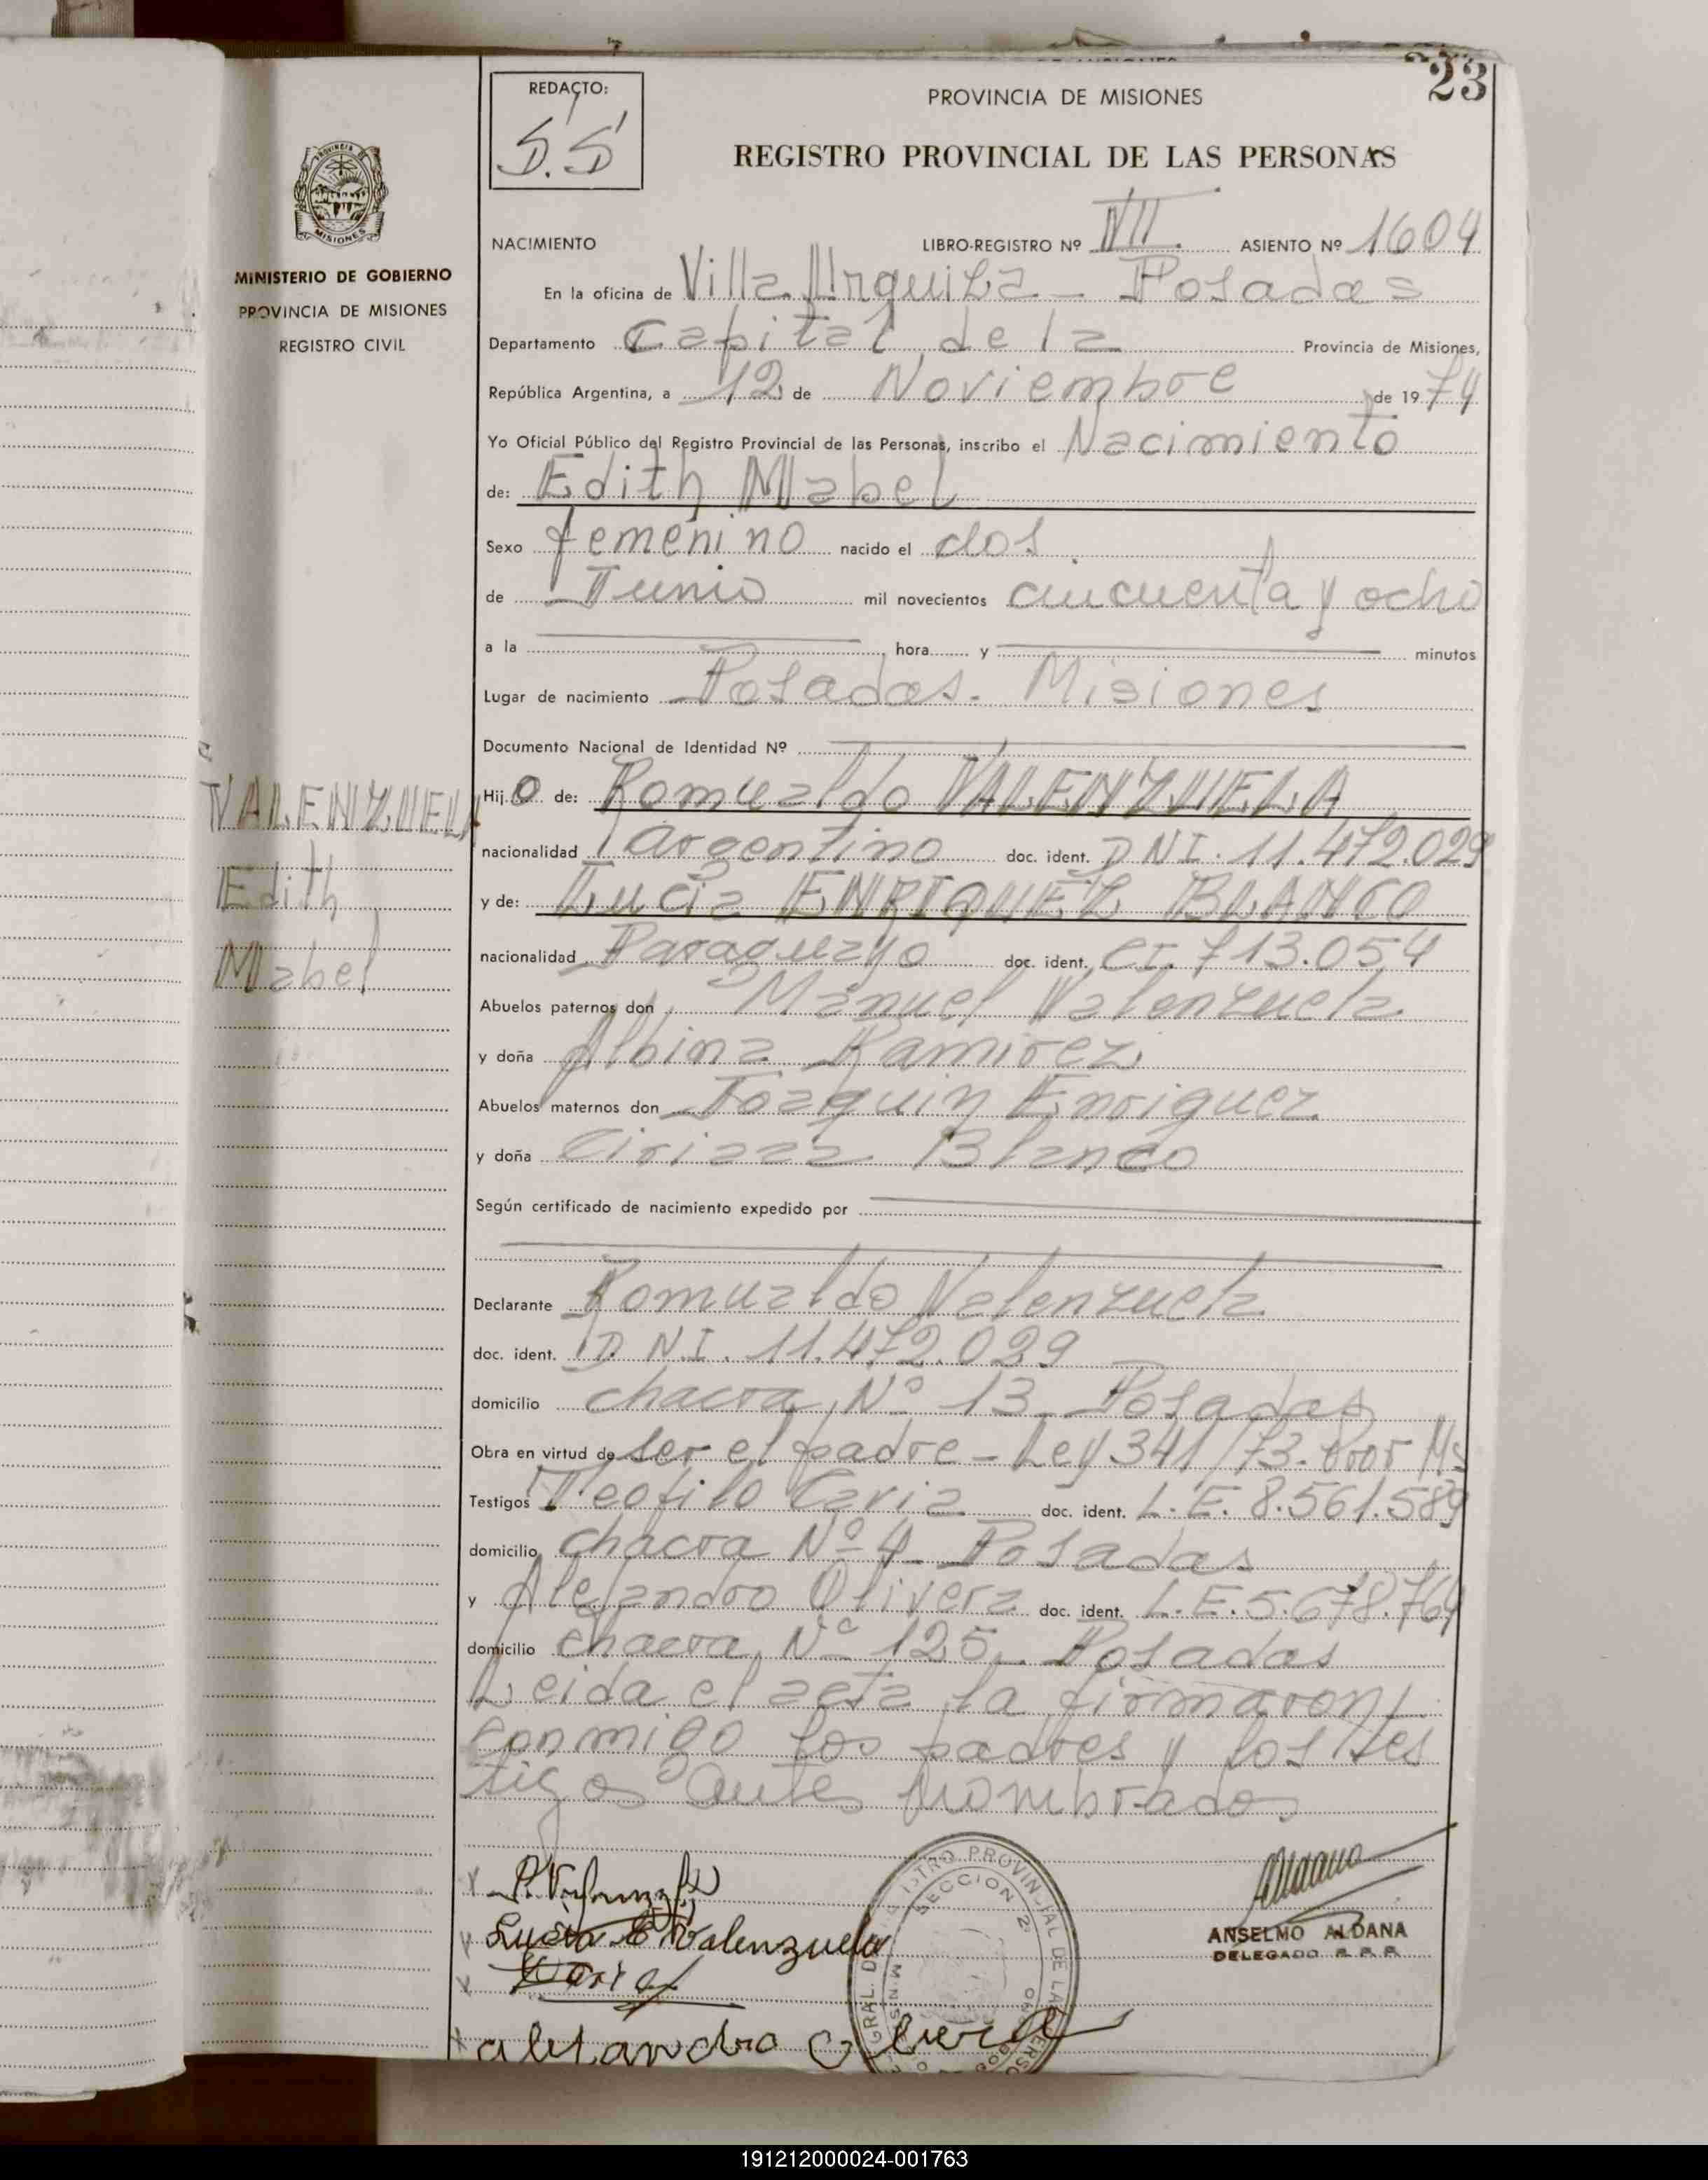 23
REDACTO:
S.S
PROVINCIA DE MISIONES
REGISTRO PROVINCIAL DE LAS PERSONAS
PROVINCIA DE
MISIONES
MINISTERIO DE GOBIERNO
PROVINCIA DE MISIONES
REGISTRO CIVIL
NACIMIENTO LIBRO-REGISTRO Nº VII. ASIENTO Nº 1604
En la oficina de Villa Urquiza - Posadas
Departamento Capital de la Provincia de Misiones,
República Argentina, a 12 de Noviembre de 1974
Yo Oficial Público del Registro Provincial de las Personas, inscribo el Nacimiento
de: Edith Mabel
Sexo femenino nacido el dos
de Junio mil novecientos cincuenta y ocho
a la hora y minutos
Lugar de nacimiento Posadas - Misiones
Documento Nacional de Identidad Nº
VALENZUELA
Edith
Mabel
Hijo de: Romualdo VALENZUELA
nacionalidad Argentino doc. ident. DNI. 11.472.029
y de: Lucia ENRIQUEZ BLANCO
nacionalidad Paraguayo doc. ident. CI. 713.054
Abuelos paternos don Manuel Valenzuela
y doña Albina Ramirez
Abuelos maternos don Joaquin Enriquez
y doña Blanco
Según certificado de nacimiento expedido por
Declarante Romualdo Valenzuela
doc. ident. D.N.I. 11.472.029
domicilio chacra Nº 13 Posadas
Obra en virtud de ser el padre - Ley 341/73.
Testigos Teofilo doc. ident. L.E. 8.561.589
domicilio chacra Nº 4 - Posadas
y Alejandro Olivera doc. ident. L.E. 5.678.764
domicilio chacra Nº 125 - Posadas
Leida el acta la firmaron
conmigo los padres y los tes
tigos antes nombrados
Lucia E Valenzuela
ANSELMO ALDANA
DELEGADO R.P.P.
SECCION 2
191212000024-001763